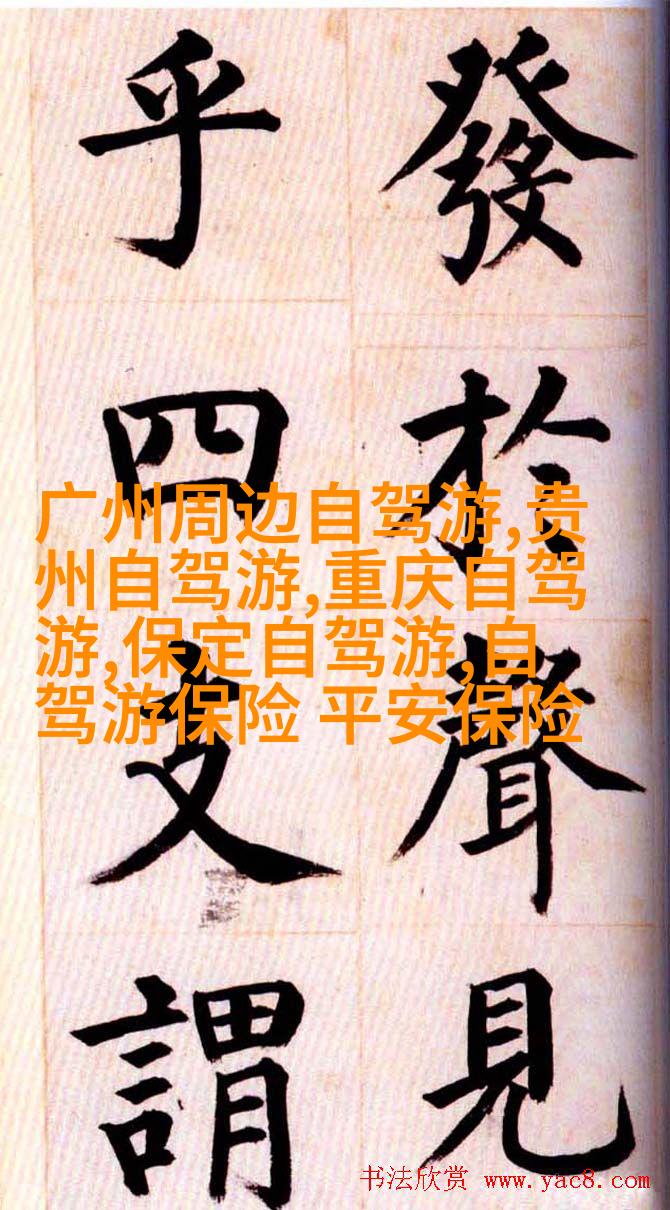 發於聲見
乎四支謂
广州周边自驾游,贵
州自驾游,重庆自驾
游,保定自驾游,自
驾游保险 平安保险
书法欣赏 www.yac8.com